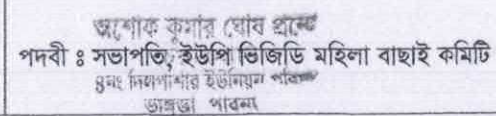 অশোক কুমার ঘোষ
পদবী ঃ সভাপতি, ইউপি ভিজিডি মহিলা বাছাই কমিটি
৪নং ইউনিয়ন পরিষদ
ভাঙ্গুড়া পাবনা